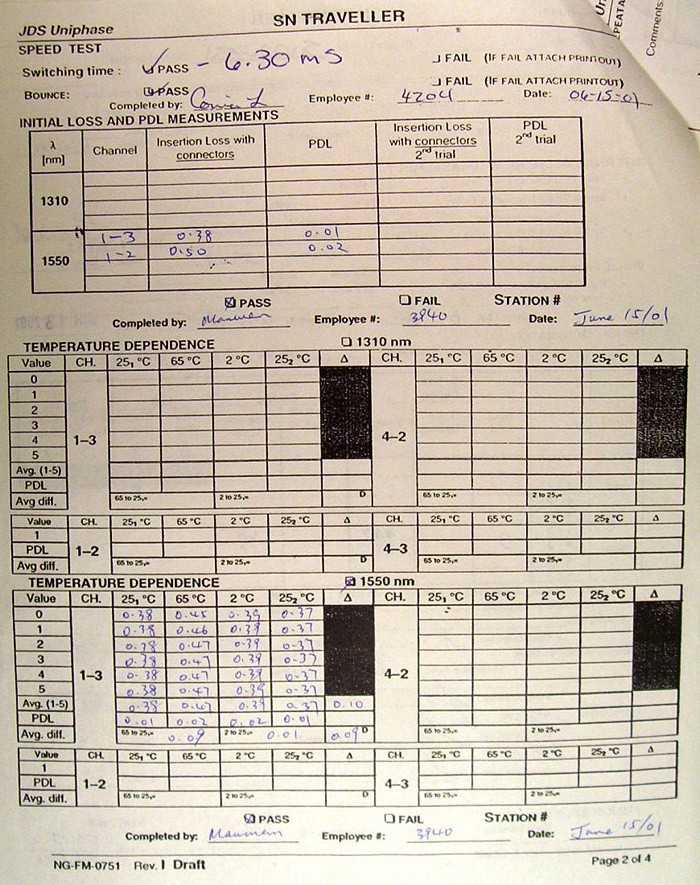 JDS Uniphase
SN TRAVELLER
SPEED TEST
Switching time : PASS - 6.30 ms FAIL (IF FAIL ATTACH PRINTOUT)
BOUNCE: PASS FAIL (IF FAIL ATTACH PRINTOUT)
Completed by: Employee #: 4204 Date: 06-15-01
Comments:
INITIAL LOSS AND PDL MEASUREMENTS
λ [nm] Channel Insertion Loss with connectors PDL Insertion Loss with connectors 2nd trial PDL 2nd trial
1310
1550 1-3 0.38 0.01
1-2 0.50 0.02
PASS FAIL STATION #
Completed by: Employee #: 3940 Date: June 15/01
TEMPERATURE DEPENDENCE 1310 nm
Value CH. 25₁ °C 65 °C 2 °C 25₂ °C Δ CH. 25₁ °C 65 °C 2 °C 25₂ °C Δ
0
1
2
3
4 1-3 4-2
5
Avg. (1-5)
PDL
Avg diff. 65 to 25,= 2 to 25,= D 65 to 25,= 2 to 25,=
Value CH. 25₁ °C 65 °C 2 °C 25₂ °C Δ CH. 25₁ °C 65 °C 2 °C 25₂ °C Δ
1
PDL 1-2 4-3
Avg diff. 65 to 25,= 2 to 25,= D 65 to 25,= 2 to 25,=
TEMPERATURE DEPENDENCE 1550 nm
Value CH. 25₁ °C 65 °C 2 °C 25₂ °C Δ CH. 25₁ °C 65 °C 2 °C 25₂ °C Δ
0 0.38 0.45 0.39 0.37
1 0.38 0.46 0.39 0.37
2 0.38 0.47 0.39 0.37
3 0.38 0.47 0.39 0.37
4 1-3 0.38 0.47 0.39 0.37 4-2
5 0.38 0.47 0.39 0.37
Avg. (1-5) 0.38 0.47 0.39 0.37 0.10
PDL 0.01 0.02 0.02 0.01
Avg. diff. 65 to 25,= 0.09 2 to 25,= 0.01 0.09 D 65 to 25,= 2 to 25,=
Value CH. 25₁ °C 65 °C 2 °C 25₂ °C Δ CH. 25₁ °C 65 °C 2 °C 25₂ °C Δ
1
PDL 1-2 4-3
Avg. diff. 65 to 25,= 2 to 25,= D 65 to 25,= 2 to 25,=
PASS FAIL STATION #
Completed by: Employee #: 3940 Date: June 15/01
NG-FM-0751 Rev. 1 Draft
Page 2 of 4